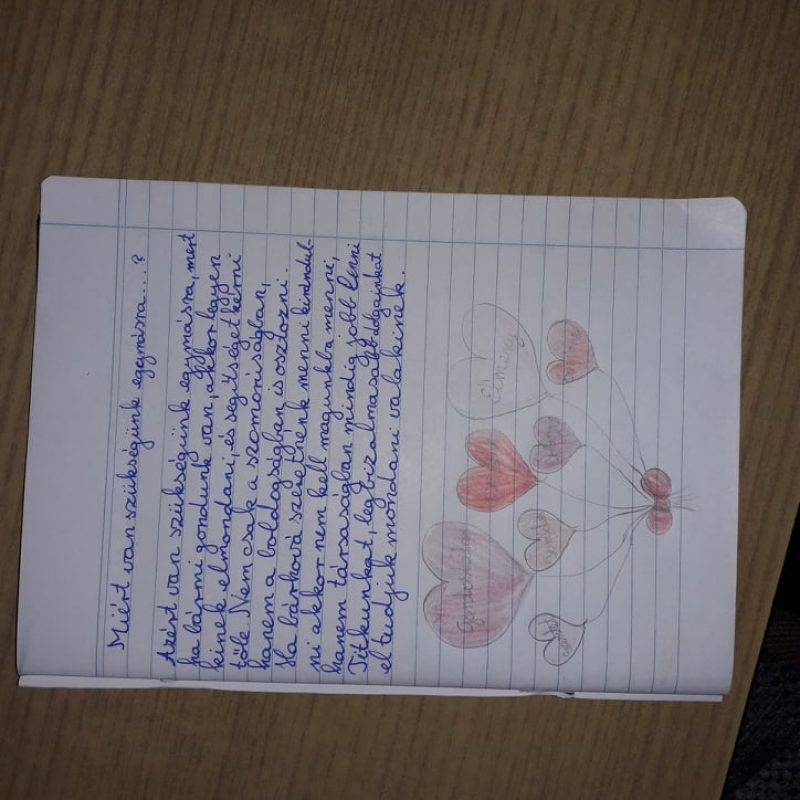 Miért van szükségünk egymásra...?
Azért van szükségünk egymásra, mert
ha bármi gondunk van, akkor legyen
kinek elmondani, és segítséget kérni
tőle. Nem csak a szomorúságban,
hanem a boldogságban is osztozni.
Ha bárhová szeretnénk menni kirándul-
ni akkor nem kell magunkba menni,
hanem társaságban mindig jobb lenni
Titkunkat, legbizalmasabb dolgainkat
el tudjuk mondani valakinek.
Élmény